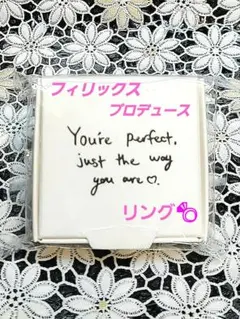 フィリックス
プロデュース
You're perfect,
just the way
you are♡.
リング💍